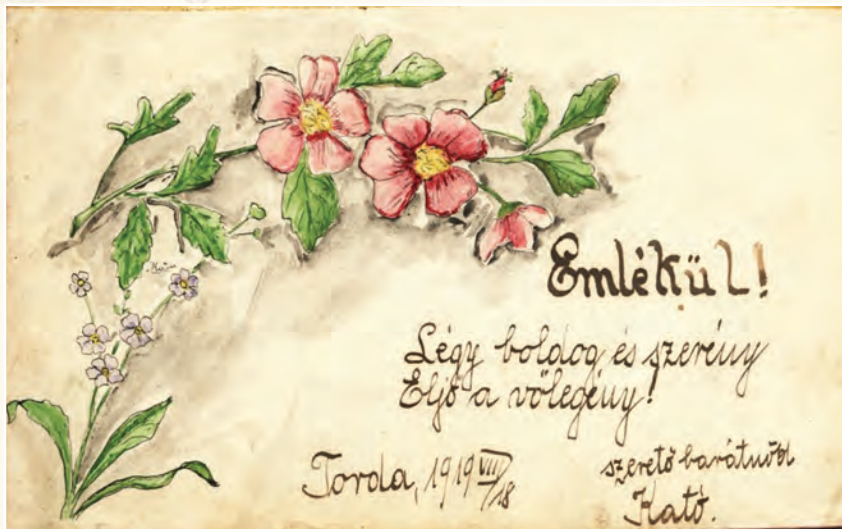 Emlékül!
Légy boldog és szerény
Eljő a vőlegény!
Torda, 1919 VIII/18
szerető barátnőd
Kató.